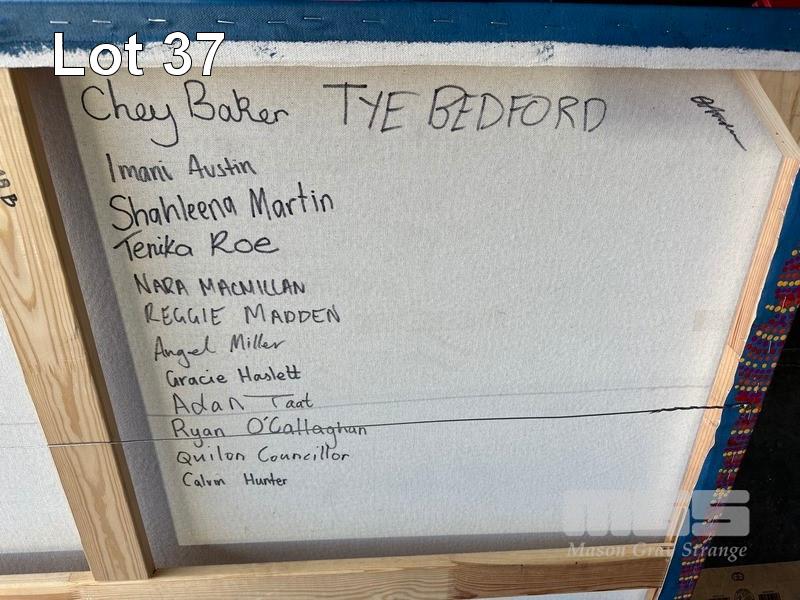 Lot 37
Chey Baker TYE BEDFORD
Imani Austin
Shahleena Martin
Tenika Roe
NARA MACMILLAN
REGGIE MADDEN
Angel Miller
Gracie Haslett
Adan Taat
Ryan O'Callaghan
Quilon Councillor
Calvin Hunter
MGS
Mason Gray Strange